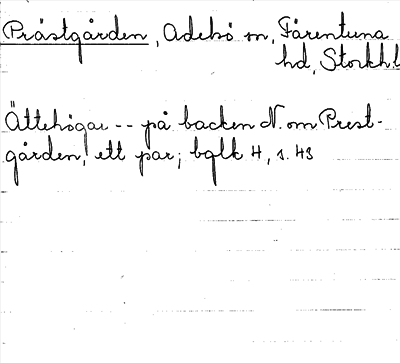 Prästgården, Adelsö sn, Färentuna
hd, Stockh.l
Ättehögar -- på backen N. om Prest-
gården, ett par; bglk H, s. 43